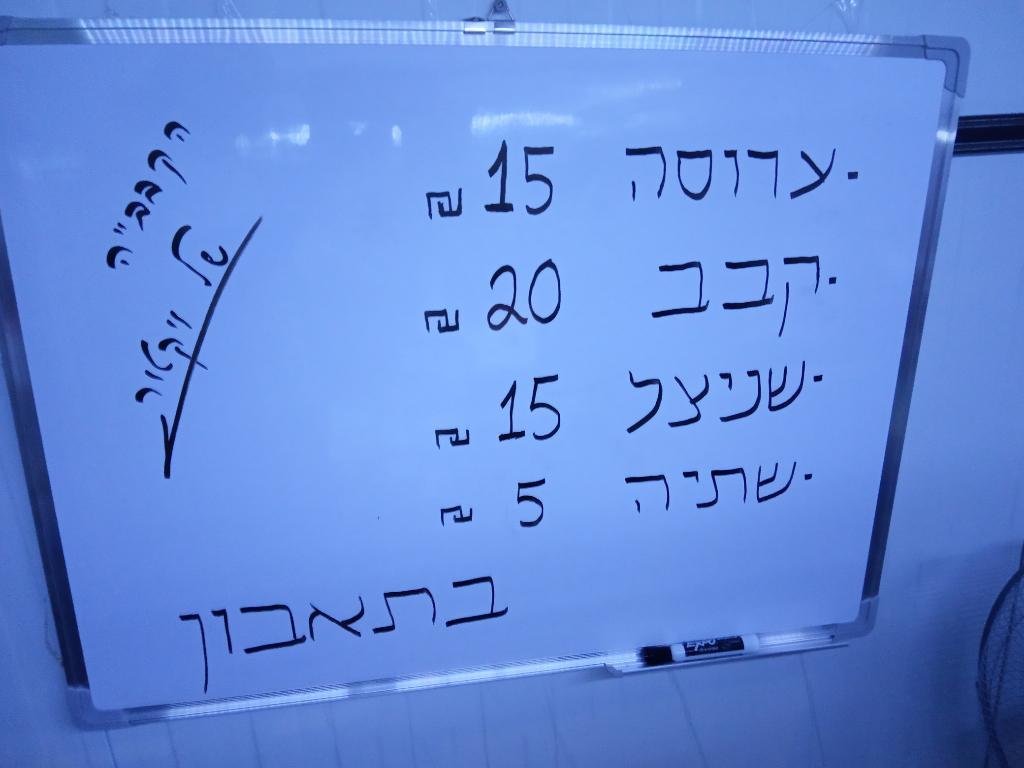 ·ערוסה 15 ₪
·קבב 20 ₪
·שניצל 15 ₪
·שתיה 5 ₪
בתאבון
הקבב"ה
של ויקטור
EXPO